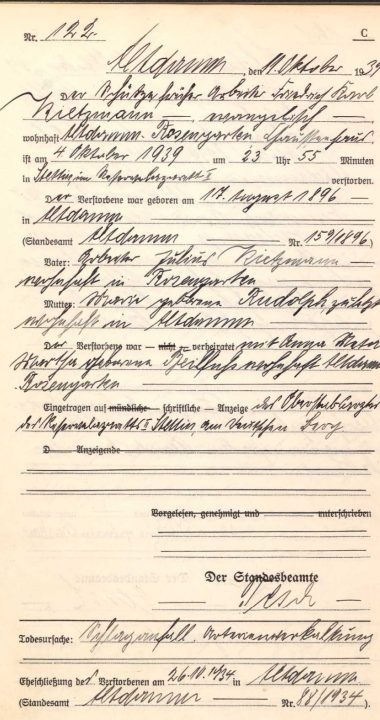 Nr. 122 C
Altdamm, den 11. Oktober 1939
Der Schütze früher Arbeiter Friedrich Karl
Kietzmann, — evangelisch —
wohnhaft Altdamm. Rosengarten Chausseehaus
ist am 4. Oktober 1939 um 23 Uhr 55 Minuten
in Stettin im Reservelazarett II verstorben.
Der Verstorbene war geboren am 17. August 1896
in Altdamm
(Standesamt Altdamm Nr. 159/1896)
Vater: Arbeiter Julius Kietzmann
wohnhaft in Rosengarten
Mutter: Marie geborene Rudolph zuletzt
wohnhaft in Altdamm
Der Verstorbene war — nicht — verheiratet mit Anna
Martha geborene wohnhaft Altdamm
Rosengarten
Eingetragen auf mündliche — schriftliche — Anzeige des Oberstabsarztes
des Reservelazaretts II Stettin, am Deutschen Berg
D Anzeigende
Vorgelesen, genehmigt und unterschrieben
Der Standesbeamte
Todesursache: Schlaganfall. Arterienverkalkung
Eheschließung des Verstorbenen am 26.10.1934 in Altdamm
(Standesamt Altdamm Nr. 98/1934)